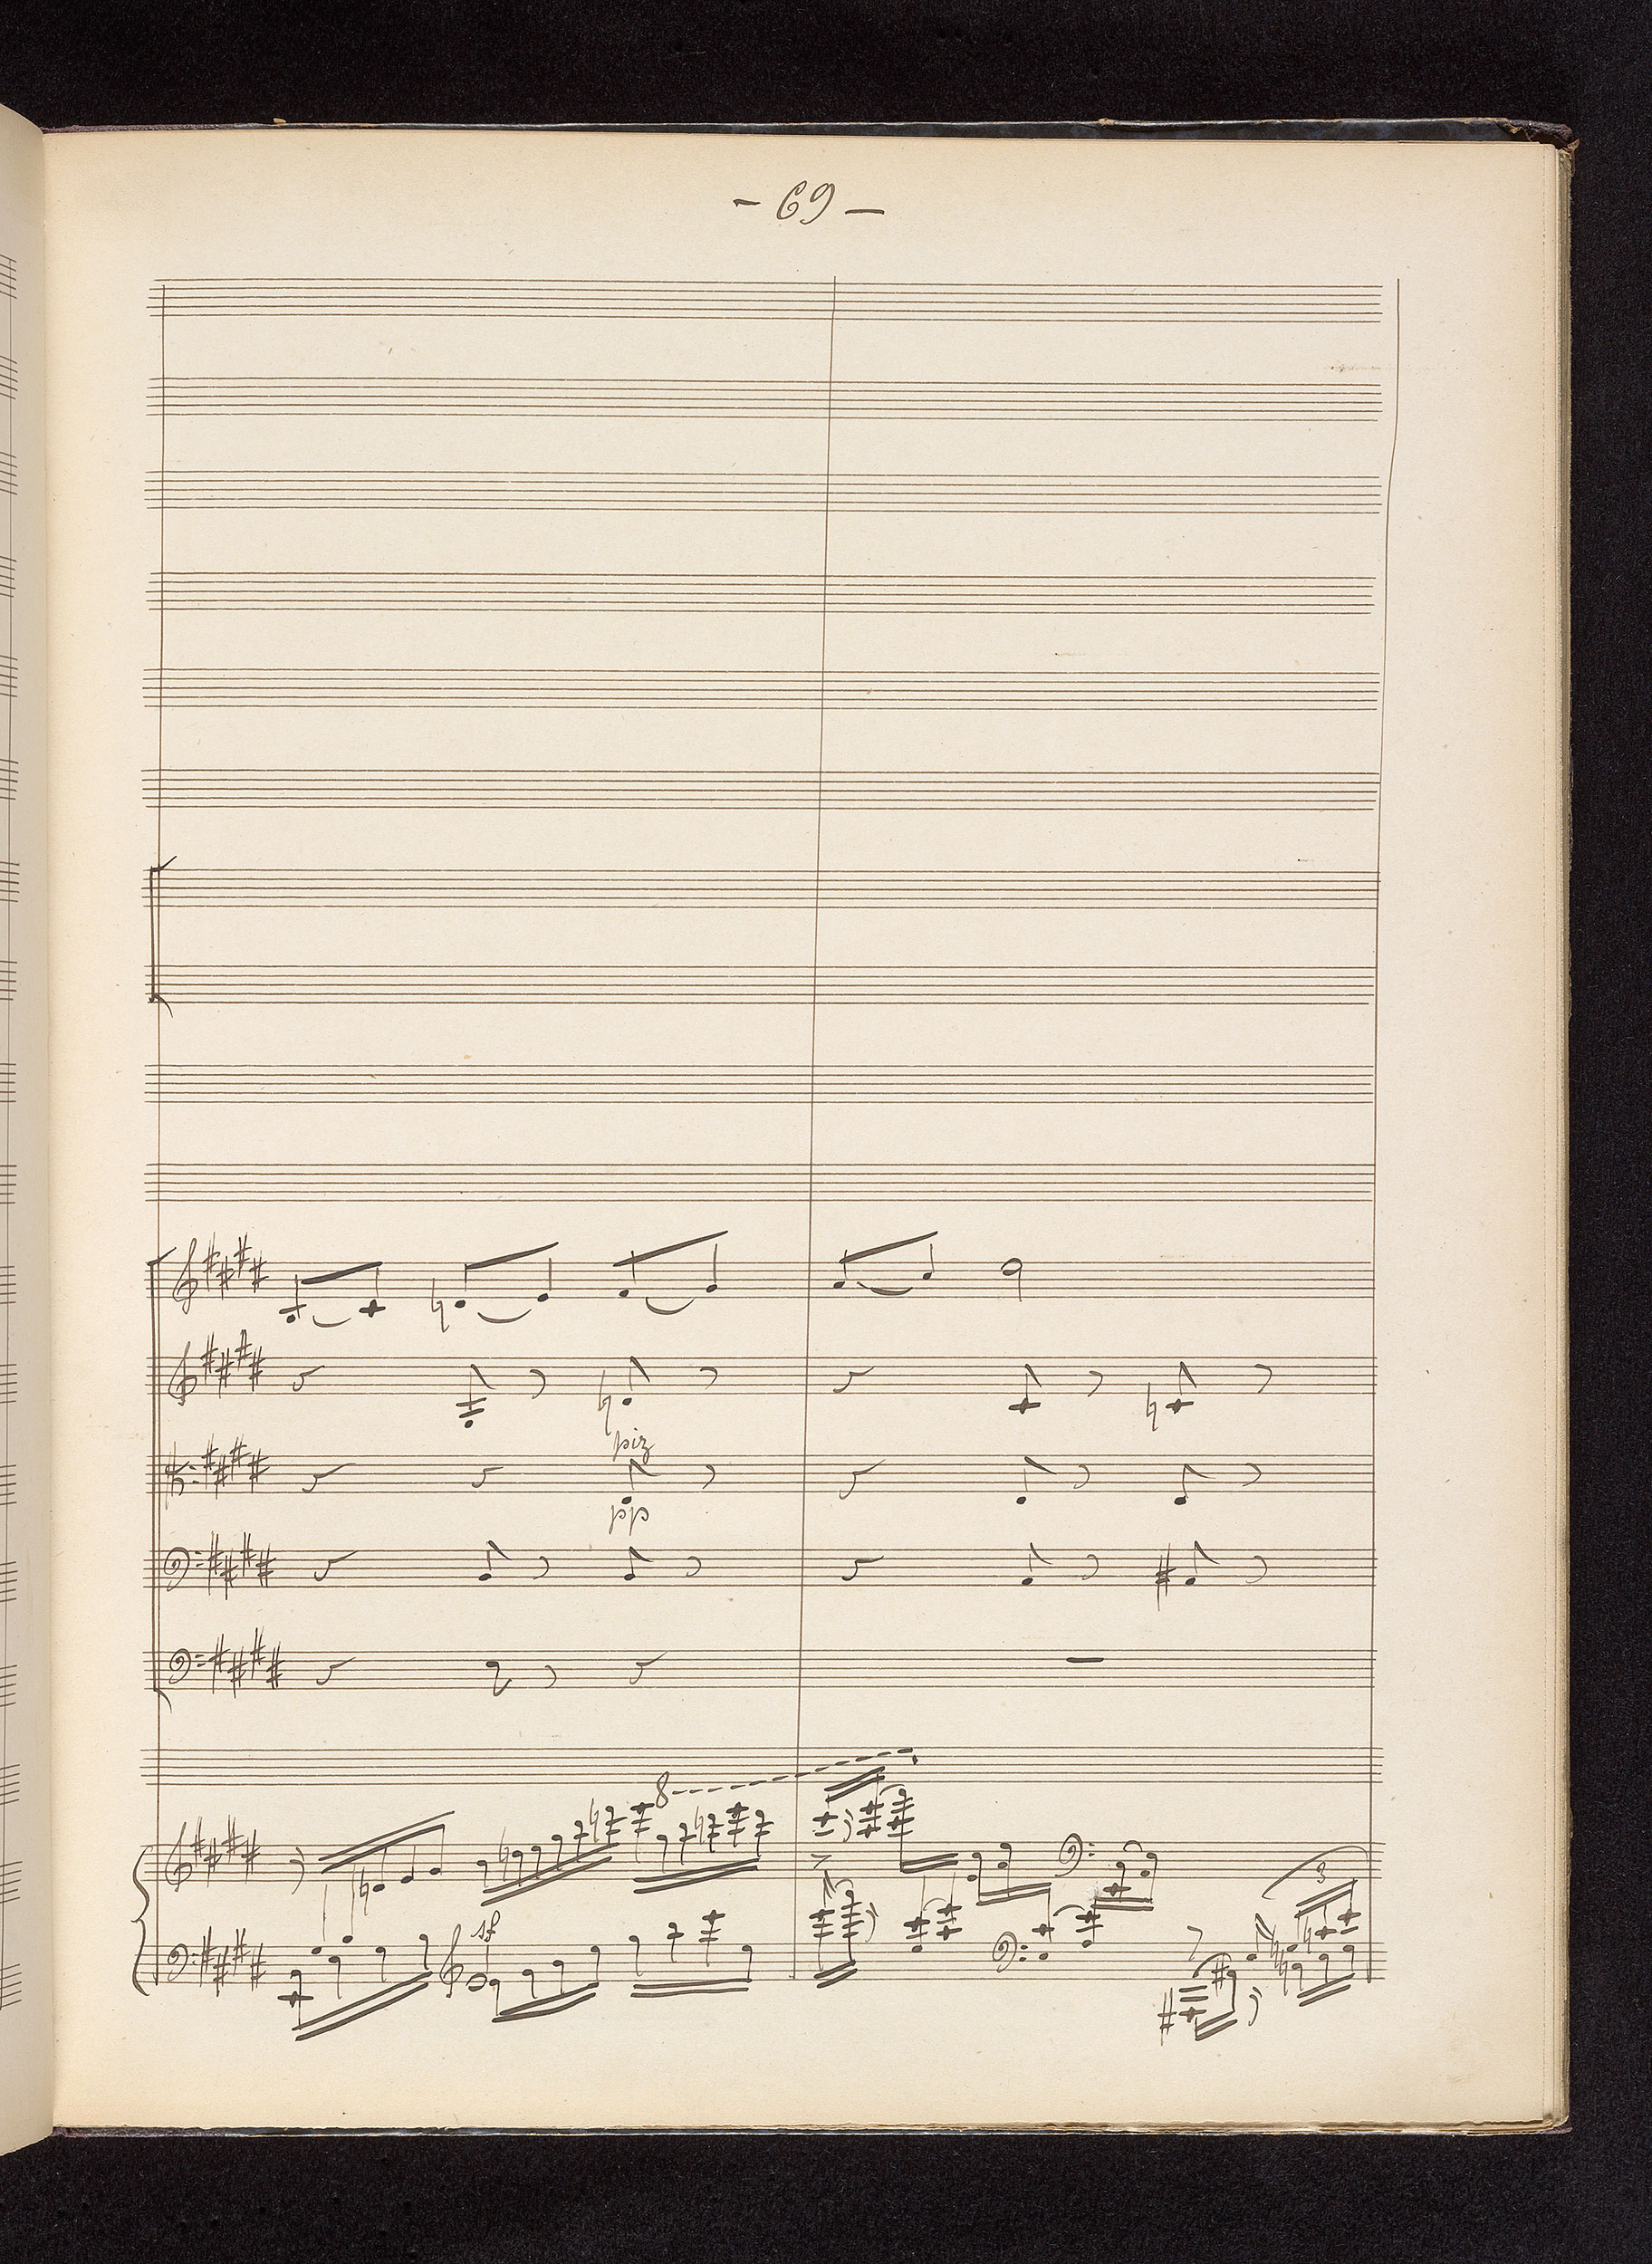 - 69 -
piz
pp
8
sf
3